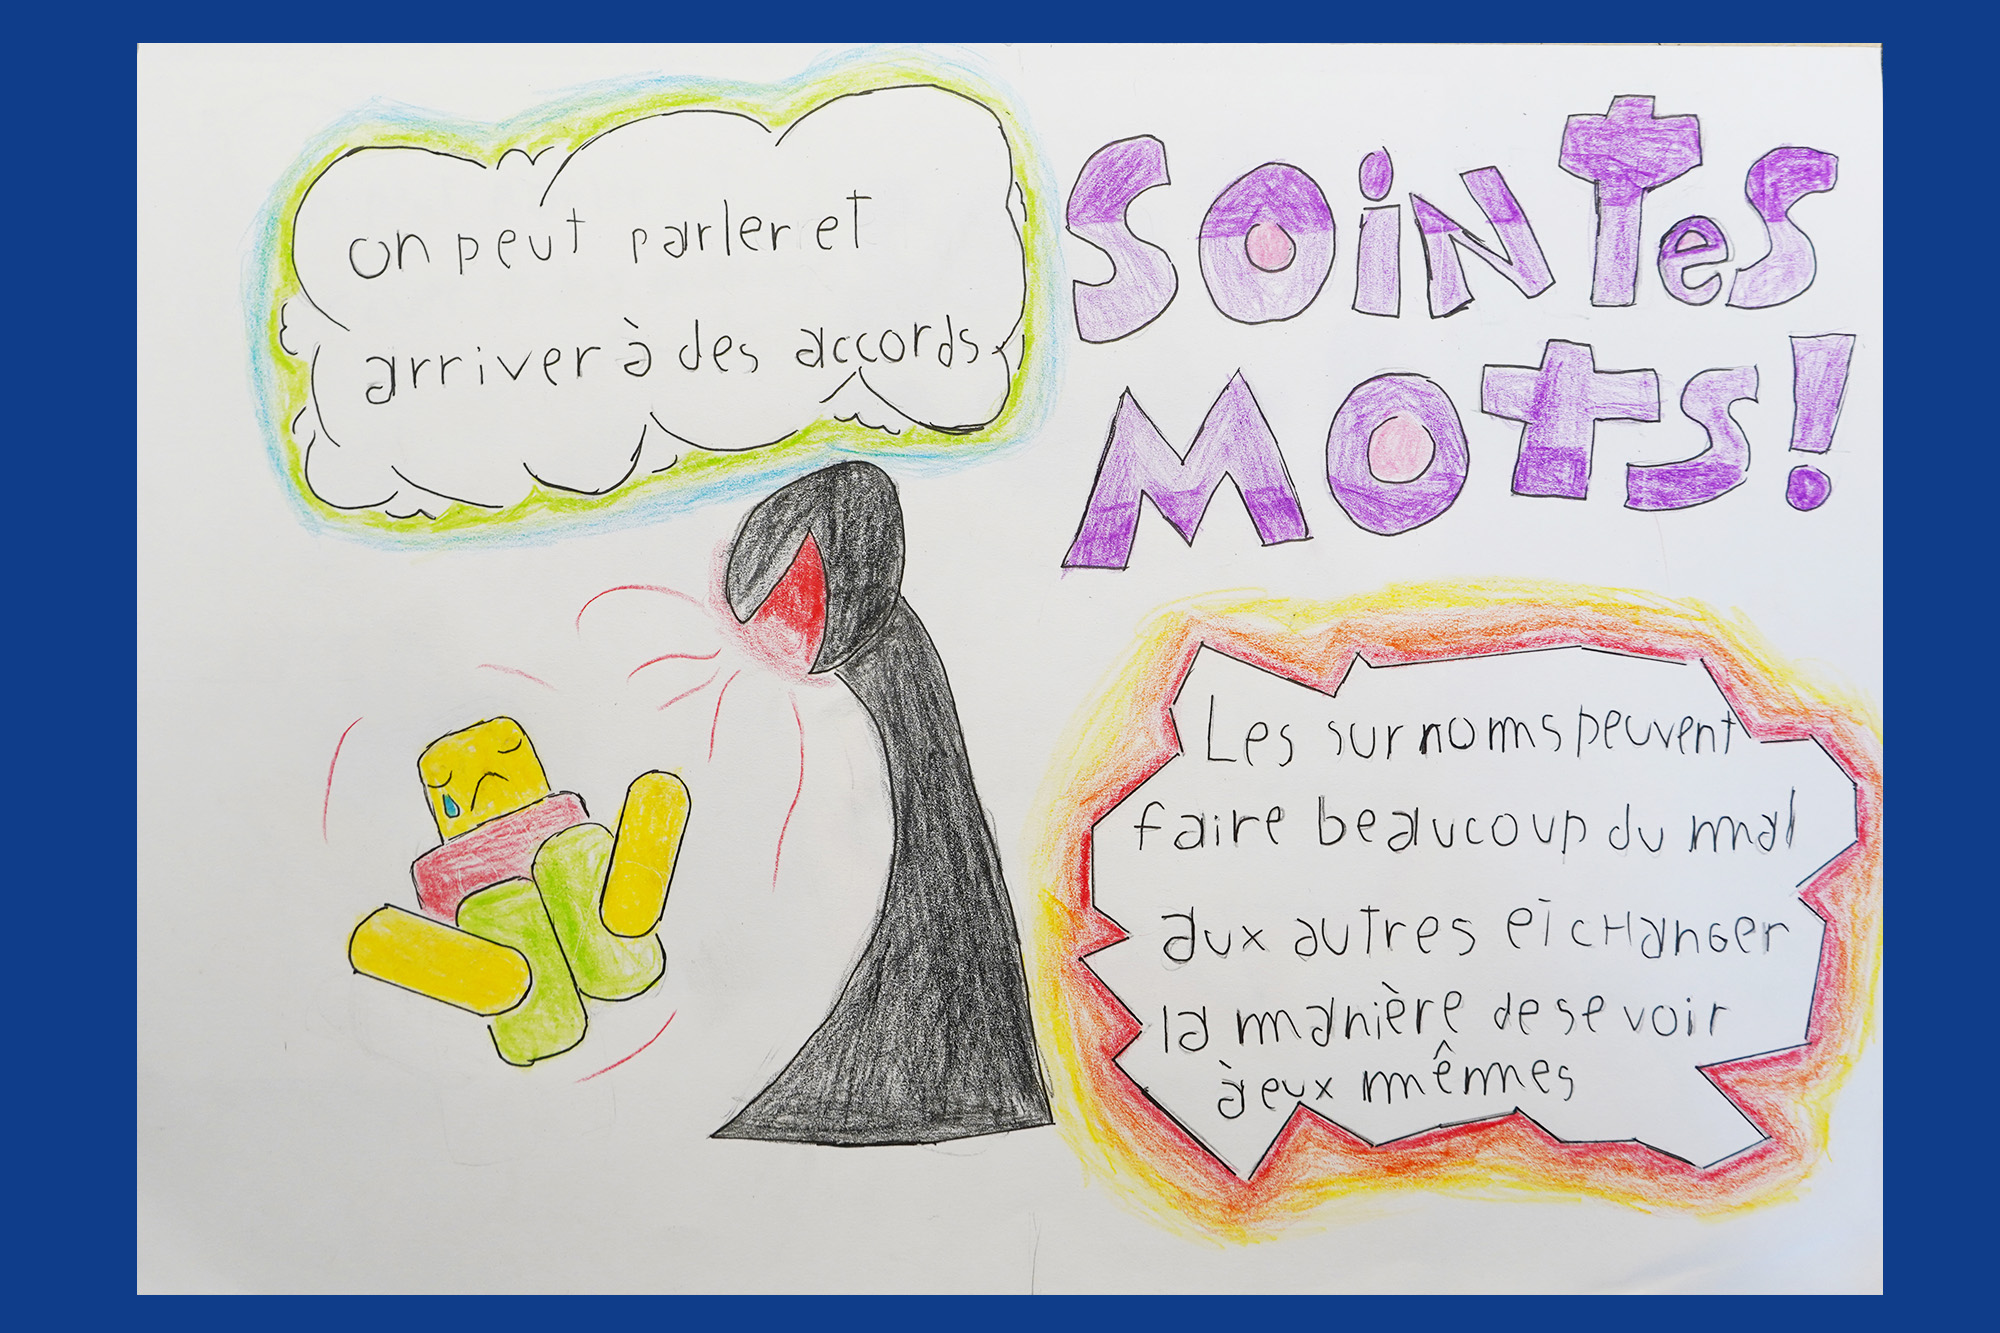 on peut parler et
arriver à des accords
SOiN Tes
MOts!
Les surnoms peuvent
faire beaucoup du mal
aux autres et cHanGer
la manière de se voir
à eux mêmes